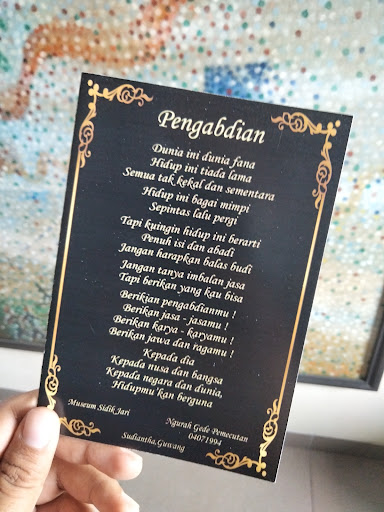 Pengabdian
Dunia ini dunia fana
Hidup ini tiada lama
Semua tak kekal dan sementara
Hidup ini bagai mimpi
Sepintas lalu pergi
Tapi kuingin hidup ini berarti
Penuh isi dan abadi
Jangan harapkan balas budi
Jangan tanya imbalan jasa
Tapi berikan yang kau bisa
Berikian pengabdianmu !
Berikan jasa - jasamu !
Berikan karya - karyamu !
Berikan jawa dan ragamu !
Kepada dia
Kepada nusa dan bangsa
Kepada negara dan dunia,
Hidupmu'kan berguna
Museum Sidik Jari
Ngurah Gede Pemecutan
04071994
Sudiantha,Guwang